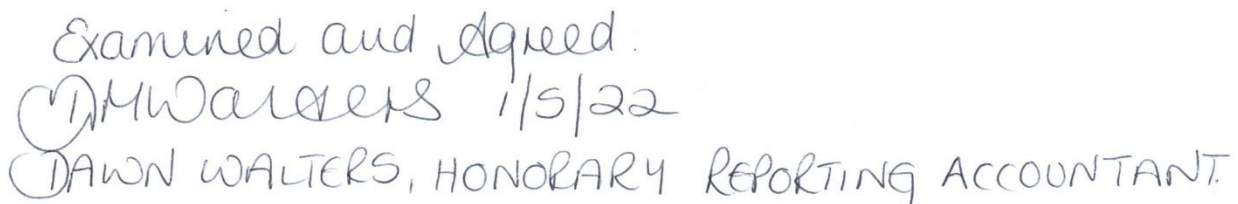 Examined and Agreed.
DMWalters 1/5/22
DAWN WALTERS, HONORARY REPORTING ACCOUNTANT.